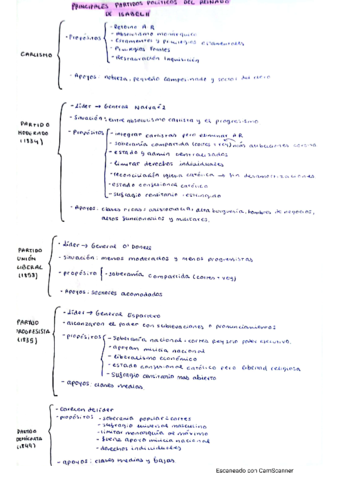 PRINCIPALES PARTIDOS POLÍTICOS DEL REINADO
DE ISABEL II
CARLISMO
- Propósitos
- Retorno A.R
- Absolutismo monárquico
- privilegios estamentales
- Privilegios forales
- Restauración Inquisición
- Apoyos: nobleza, pequeño campesinado y sector del clero
PARTIDO
MODERADO
(1834)
- Líder → General Narváez
- Situación: entre absolutismo carlista y el progresismo
- Propósitos
- integrar carlistas pero eliminar AR
- soberanía compartida (cortes + rey) más atribuciones corona
- estado y admin centralizados
- limitar derechos individuales
- reconciliación iglesia católica → fin desamortizaciones
- estado confesional católico
- sufragio censitario restringido
- Apoyos: clases ricas: aristocracia, alta burguesía, hombres de negocios,
altos funcionarios y militares.
PARTIDO
UNIÓN
LIBERAL
- líder → General O'Donnell
- situación: menos moderados y menos progresistas
- propósito
- soberanía compartida (cortes + rey)
- Apoyos: sectores acomodados
PARTIDO
PROGRESISTA
- Líder → General Espartero
- alcanzaron el poder con sublevaciones + pronunciamientos
- propósitos
- Soberanía nacional: cortes. Rey solo poder ejecutivo.
- apoyan milicia nacional
- liberalismo económico
- estado confesional católico pero libertad religiosa
- sufragio censitario más abierto
- apoyos: clases medias
PARTIDO
DEMÓCRATA
(1849)
- carecen de líder
- propósitos
- soberanía popular: cortes
- sufragio universal masculino
- limitar monarquía al máximo
- apoyo milicia nacional
- derechos individuales
- apoyos: clases medias y bajas
Escaneado con CamScanner